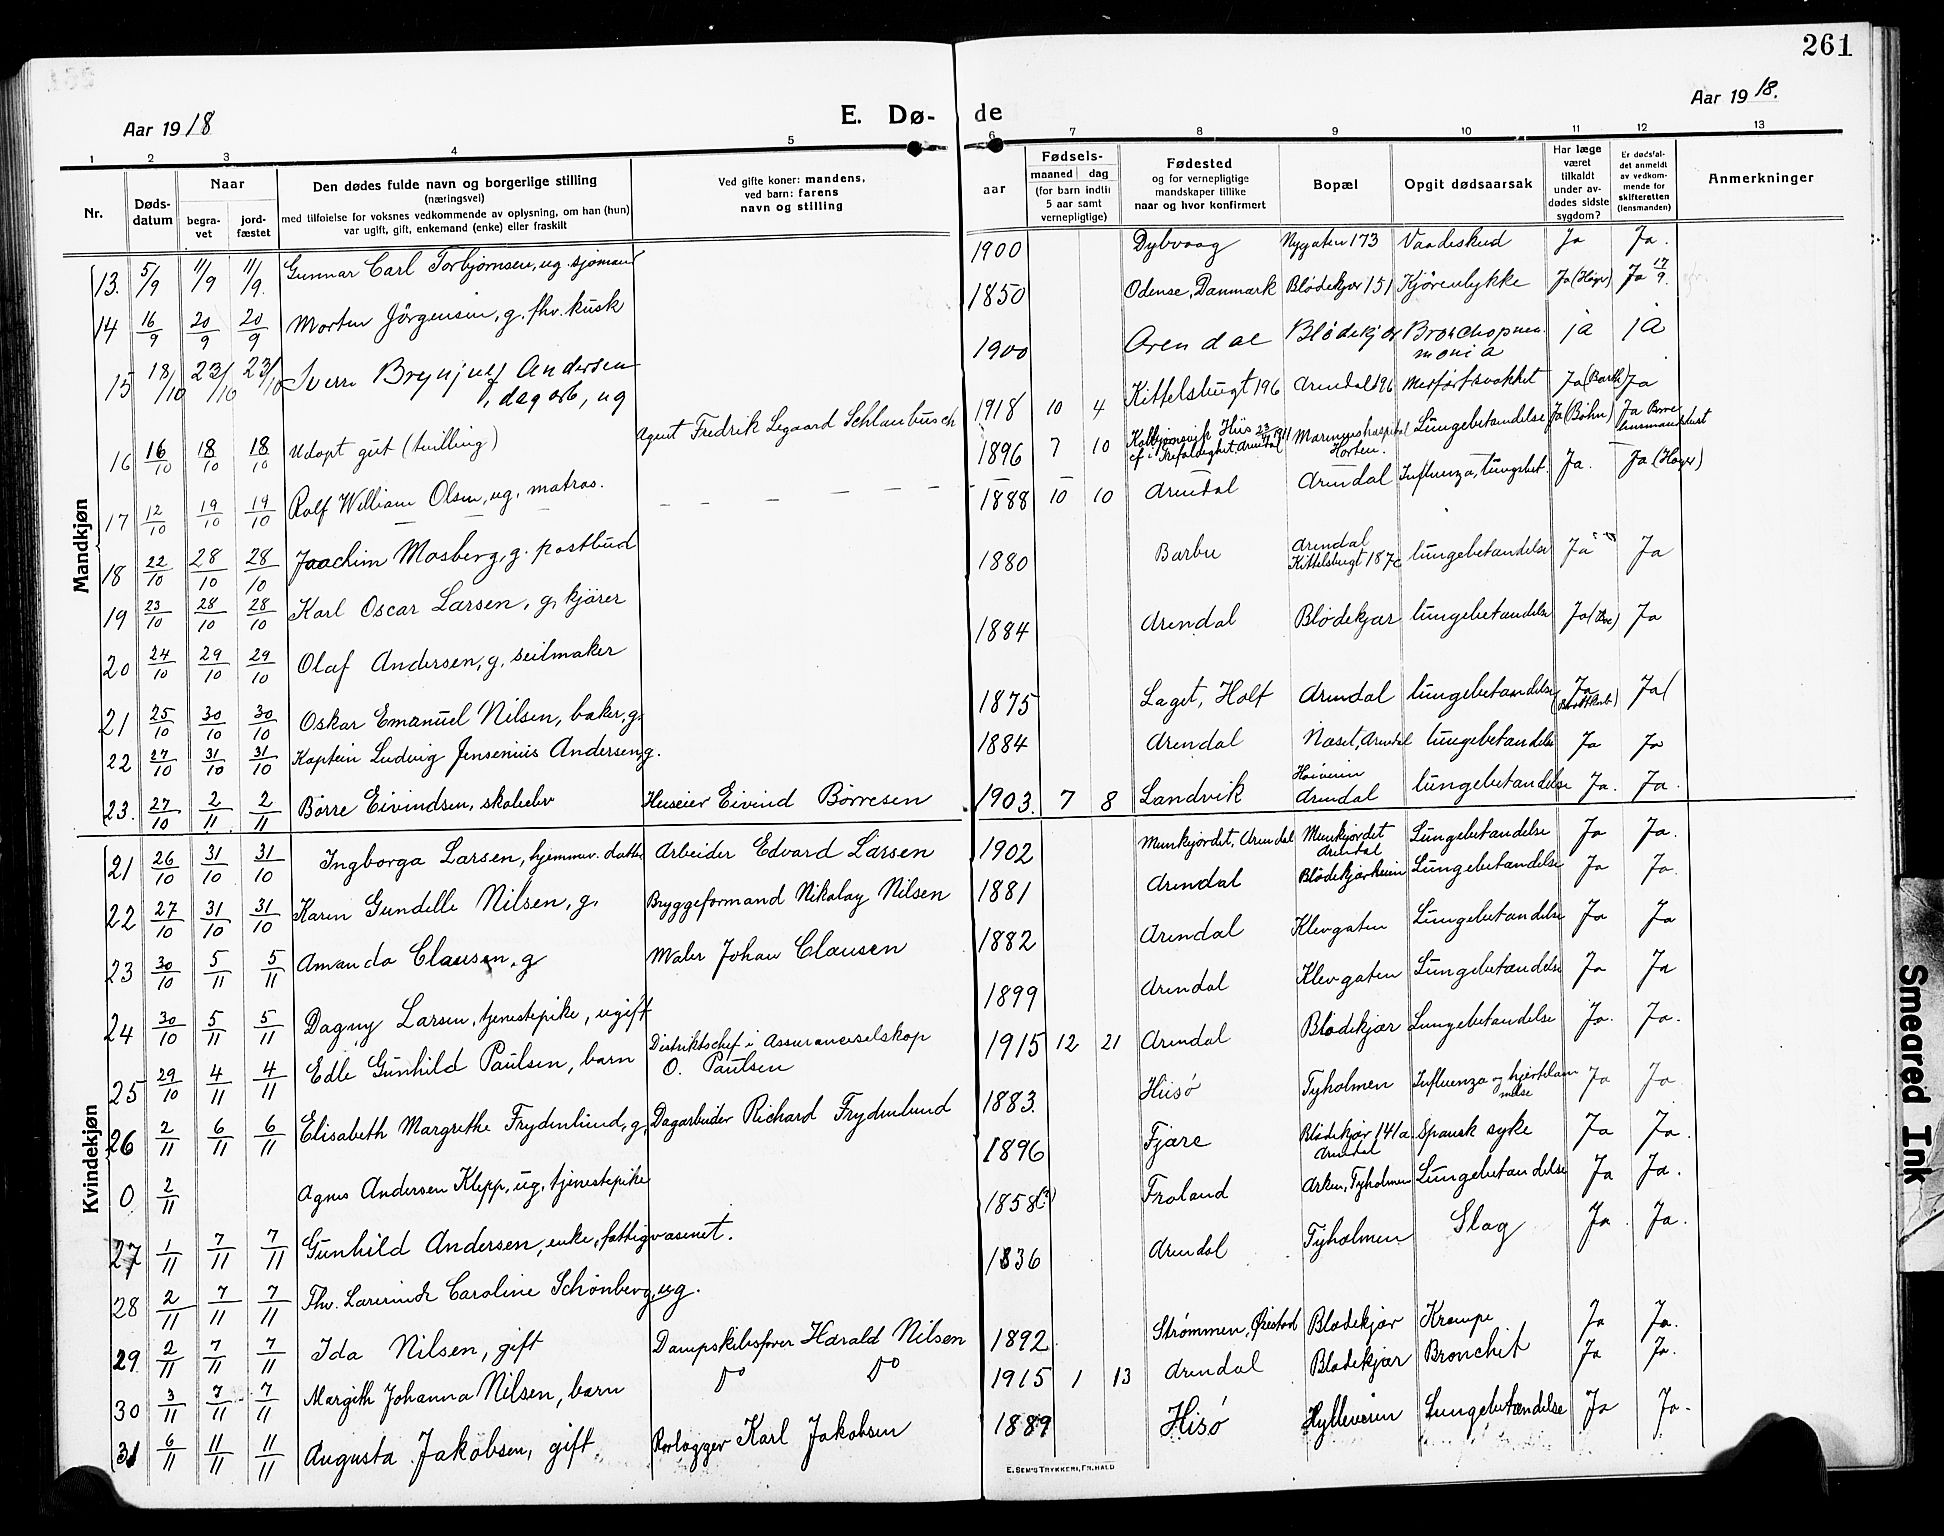 261
Aar 1918
E. Dø- de
Aar 1918.
1 2 3 4 5 6 7 8 9 10 11 12 13
Nr.
Døds-
datum
Naar
begra-
vet
jord-
fæstet
Den dødes fulde navn og borgerlige stilling
(næringsvei)
med tilføielse for voksnes vedkommende av oplysning, om han (hun)
var ugift, gift, enkemand (enke) eller fraskilt
Ved gifte koner: mandens,
ved barn: farens
navn og stilling
Fødsels-
aar
maaned dag
(for barn indtil
5 aar samt
vernepligtige)
Fødested
og for vernepligtige
mandskaper tillike
naar og hvor konfirmert
Bopæl
Opgit dødsaarsak
Har læge
været
tilkaldt
under av-
dødes sidste
sygdom?
Er dødsfal-
det anmeldt
av vedkom-
mende for
skifteretten
(lensmanden)
Anmerkninger
Mandkjøn
13. 5/9 11/9 11/9. Gunnar Carl Torbjørnsen, ug. sjømand 1900 Dybvaag Nygaten 173 Vaadeskud Ja Ja.
14 16/9 20/9 20/9 Morten Jörgensen, g. fhv. kusk 1850 Odense, Danmark Blødekjær 151 Kjøreulykke Ja (Høyer) Ja 17/9.
15 18/10 23/10 23/10 Sverre Brynjulf Andersen, dagarb, ug 1900 Arendal Blödekjær Bronchopneumonia ja ja
16 16/10 18/10 18/10 Udøpt gut (tvilling) Agent Fredrik Legaard Schlanbusch 1918 10 4 Kittelsbugt 196 Arendal 196 Ja (Barth) Ja
17 12/10 19/10 19/10 Rolf William Olsen, ug. matros. 1896 7 10 Kolbjørnsvik Hisö Marinens hospital Horten. Lungebetændelse Ja (Bøhn) Ja
18 22/10 28/10 28/10 Joachim Mosberg, g. postbud 1888 10 10 Arendal Arendal Influenza, lungebet. Ja. Ja (Høyer)
19 23/10 28/10 28/10 Karl Oscar Larsen, g, kjører 1880 Barbu Arendal Kittelsbugt 187c lungebetændelse Ja Ja
20 24/10 29/10 29/10 Olaf Andersen, g, seilmaker 1884 Arendal Blödekjær lungebetændelse Ja Ja
21 25/10 30/10 30/10 Oskar Emanuel Nilsen, baker, g. 1875 Laget, Holt Arendal lungebetændelse Ja Ja
22 27/10 31/10 31/10 Kaptein Ludvig Jensenius Andersen, g. 1884 Arendal Næset, Arendal lungebetændelse Ja Ja
23. 27/10 2/11 2/11 Børre Eivindsen, skoleelev Huseier Eivind Börresen 1903. 7 8 Landvik Høiveien Arendal lungebetændelse Ja. Ja.
Kvindekjøn
21 26/10 31/10 31/10 Ingborga Larsen, hjemmev. datter Arbeider Edvard Larsen 1902 Munkejordet, Arendal Munkejordet Arendal Lungebetændelse Ja Ja.
22 27/10 31/10 31/10 Karen Gundelle Nilsen, g. Bryggeformand Nikolay Nilsen 1881 Arendal Blødekjærheien Lungebetændelse Ja Ja.
23 30/10 5/11 5/11 Amanda Clausen, g Maler Johan Clausen 1882 Arendal Klevgaten Lungebetændelse Ja Ja
24 30/10 5/11 5/11 Dagny Larsen, tjenestepike, ugift 1899 Arendal Klevgaten Lungebetændelse Ja Ja
25 29/10 4/11 4/11 Edle Gunhild Paulsen, barn Distriktschef i Assuranceselskap O. Paulsen 1915 12 21 Arendal Blødekjær Lungebetændelse Ja. Ja.
26 2/11 6/11 6/11 Elisabeth Margrethe Frydenlund, g, Dagarbeider Richard Frydenlund 1883. Hisø Tyholmen Influenza og hjertelammelse Ja Ja
0 2/11 Agnes Andersen Klepp, ug, tjenestepike 1896 Fjære Blødekjær 141a. Arendal Spansk syke Ja Ja.
27 1/11 7/11 7/11 Gunhild Andersen, enke, fattigvæsenet. 1858(?) Froland Arken, Tyholmen Lungebetændelse Ja Ja.
28 2/11 7/11 7/11 Fhv. Lærerinde Caroline Schönberg, ug. 1836 Arendal Tyholmen Slag Ja. Ja.
29 2/11 7/11 7/11 Ida Nilsen, gift Dampskibsfører Harald Nilsen 1892 Strømmen, Øiestad Blødekjær Krampe Ja Ja.
30 3/11 7/11 7/11 Margith Johanna Nilsen, barn Do Do 1915 1 13 Arendal Blødekjær Bronchit Ja Ja.
31 6/11 11/11 11/11 Augusta Jakobsen, gift Rørlægger Karl Jakobsen 1889 Hisø Hylleveien Lungebetændelse Ja Ja.
E. SEM'S TRYKKERI, FR.HALD
Smeared Ink